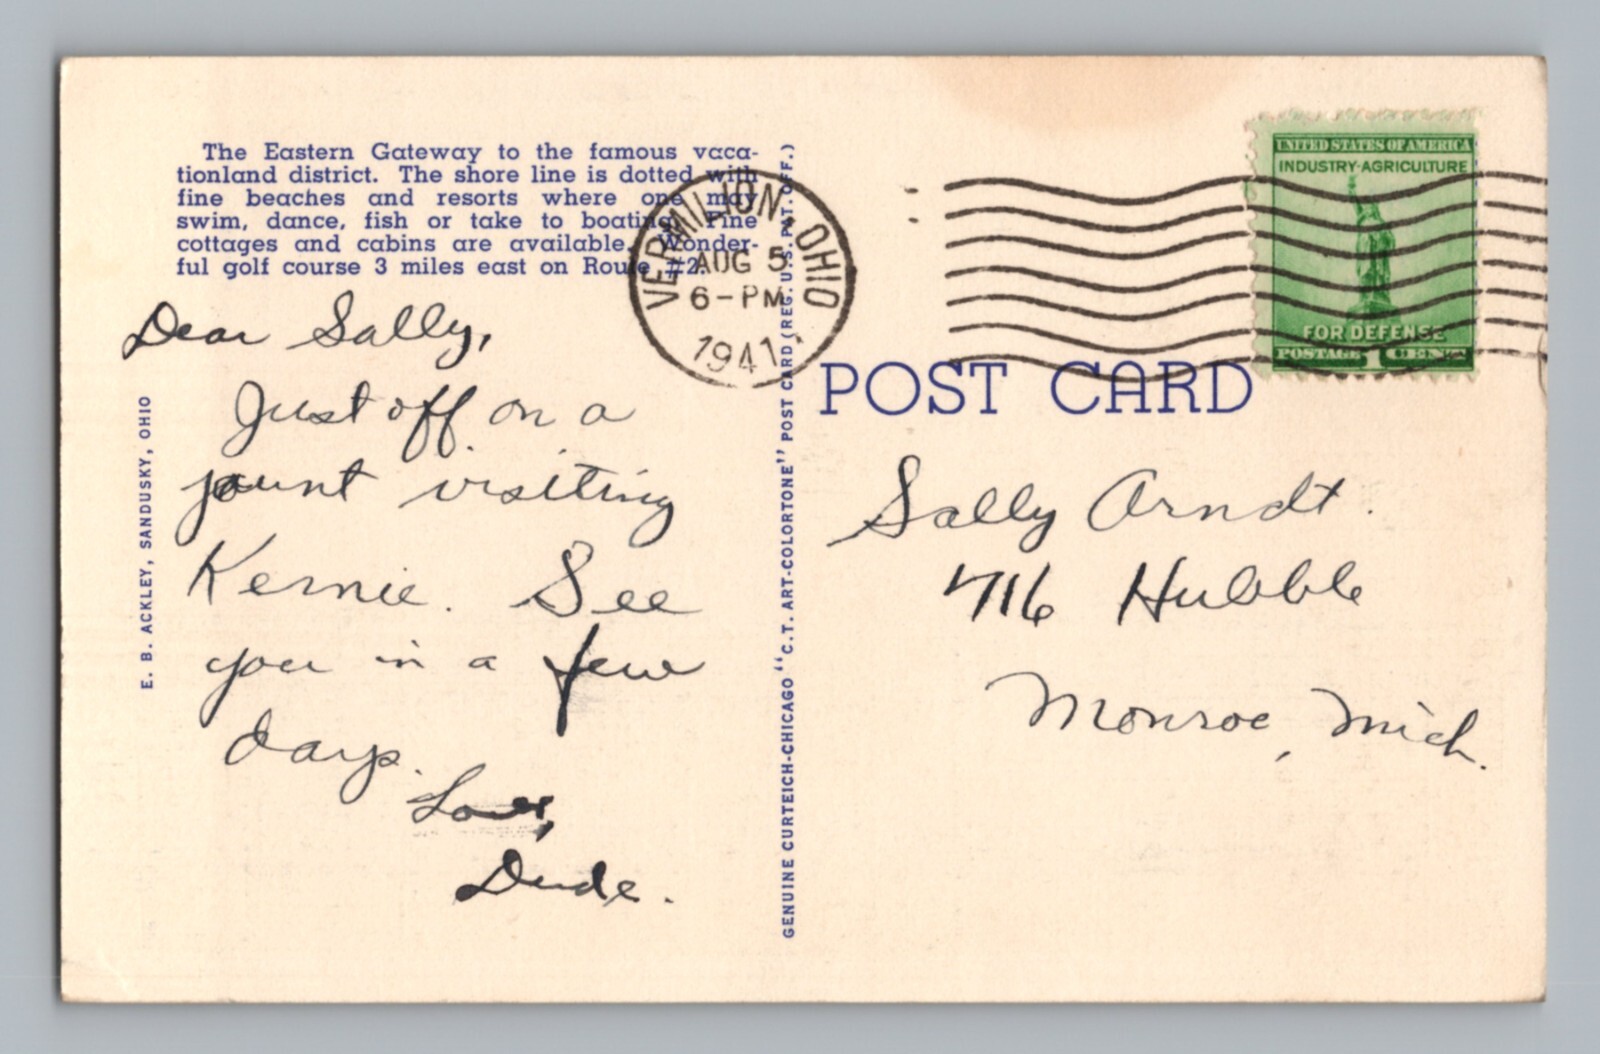 The Eastern Gateway to the famous vaca-
tionland district. The shore line is dotted with
fine beaches and resorts where one may
swim, dance, fish or take to boating. Fine
cottages and cabins are available. Wonder-
ful golf course 3 miles east on Route #2.
VERMILION, OHIO
AUG 5
6-PM
1941
UNITED STATES OF AMERICA
INDUSTRY·AGRICULTURE
FOR DEFENSE
POSTAGE 1 CENT
POST CARD
Dear Sally,
Just off on a
jaunt visiting
Kernie. See
you in a few
days.
Love,
Dude.
E. B. ACKLEY, SANDUSKY, OHIO
GENUINE CURTEICH-CHICAGO "C.T. ART-COLORTONE" POST CARD (REG. U.S. PAT. OFF.)
Sally Arndt.
716 Hubble
Monroe, Mich.